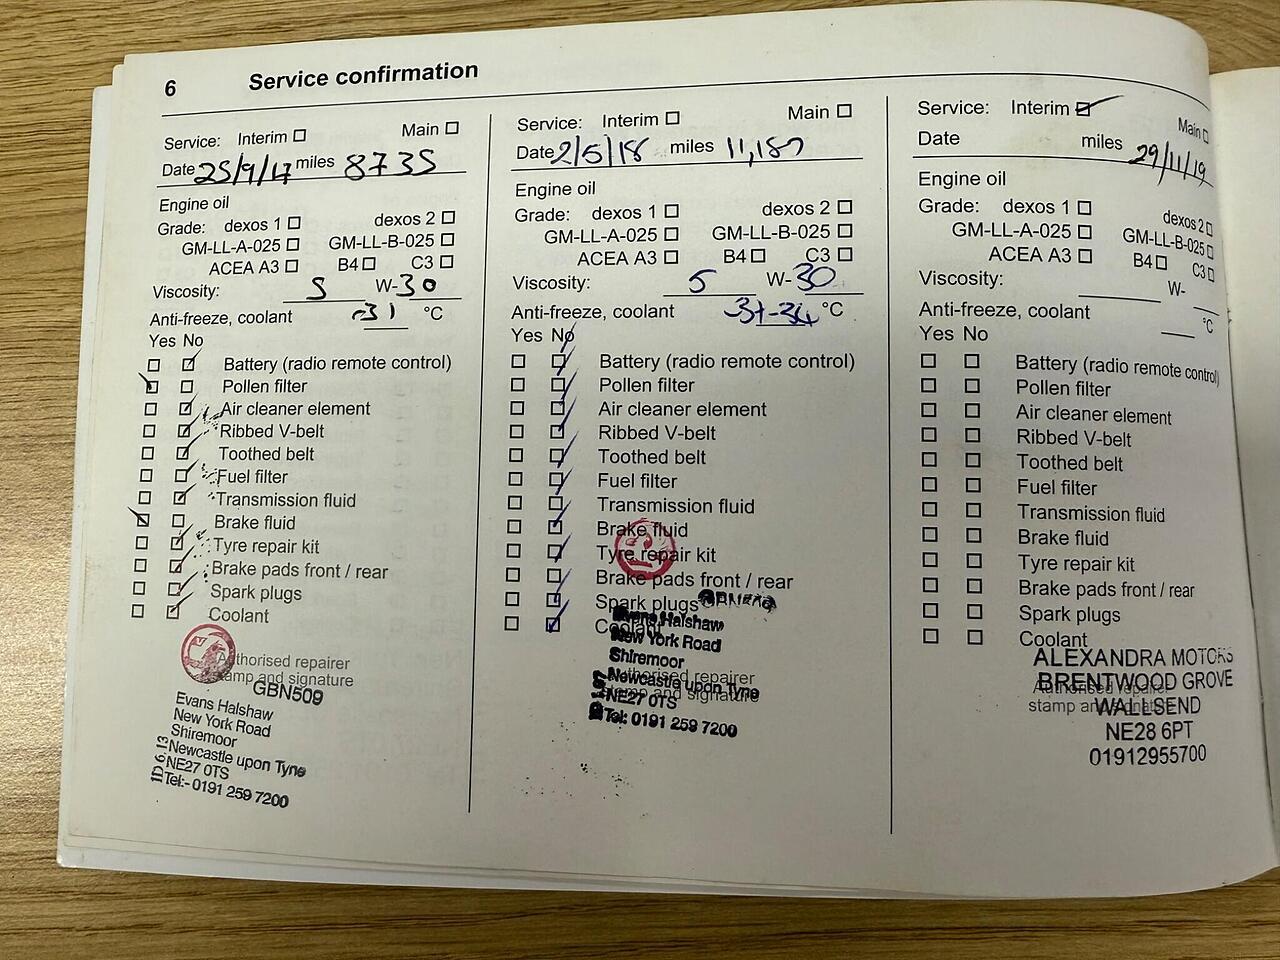 6 Service confirmation
Service: Interim Main
Date 25/9/17 miles 8735
Engine oil
Grade: dexos 1 dexos 2
GM-LL-A-025 GM-LL-B-025
ACEA A3 B4 C3
Viscosity: 5 W-30
Anti-freeze, coolant -31 °C
Yes No
Battery (radio remote control)
Pollen filter
Air cleaner element
Ribbed V-belt
Toothed belt
Fuel filter
Transmission fluid
Brake fluid
Tyre repair kit
Brake pads front / rear
Spark plugs
Coolant
Authorised repairer
stamp and signature
GBN509
Evans Halshaw
New York Road
Shiremoor
Newcastle upon Tyne
NE27 0TS
Tel:- 0191 259 7200
Service: Interim Main
Date 2/5/18 miles
Engine oil
Grade: dexos 1 dexos 2
GM-LL-A-025 GM-LL-B-025
ACEA A3 B4 C3
Viscosity: 5 W-30
Anti-freeze, coolant °C
Yes No
Battery (radio remote control)
Pollen filter
Air cleaner element
Ribbed V-belt
Toothed belt
Fuel filter
Transmission fluid
Brake fluid
Tyre repair kit
Brake pads front / rear
Spark plugs
Coolant
Evans Halshaw
New York Road
Shiremoor
Authorised repairer
Newcastle upon Tyne
stamp and signature
NE27 0TS
Tel: 0191 259 7200
Service: Interim Main
Date miles 29/11/19
Engine oil
Grade: dexos 1 dexos 2
GM-LL-A-025 GM-LL-B-025
ACEA A3 B4 C3
Viscosity: W-
Anti-freeze, coolant °C
Yes No
Battery (radio remote control)
Pollen filter
Air cleaner element
Ribbed V-belt
Toothed belt
Fuel filter
Transmission fluid
Brake fluid
Tyre repair kit
Brake pads front / rear
Spark plugs
Coolant
ALEXANDRA MOTORS
BRENTWOOD GROVE
Authorised repairer
WALLSEND
stamp and signature
NE28 6PT
01912955700